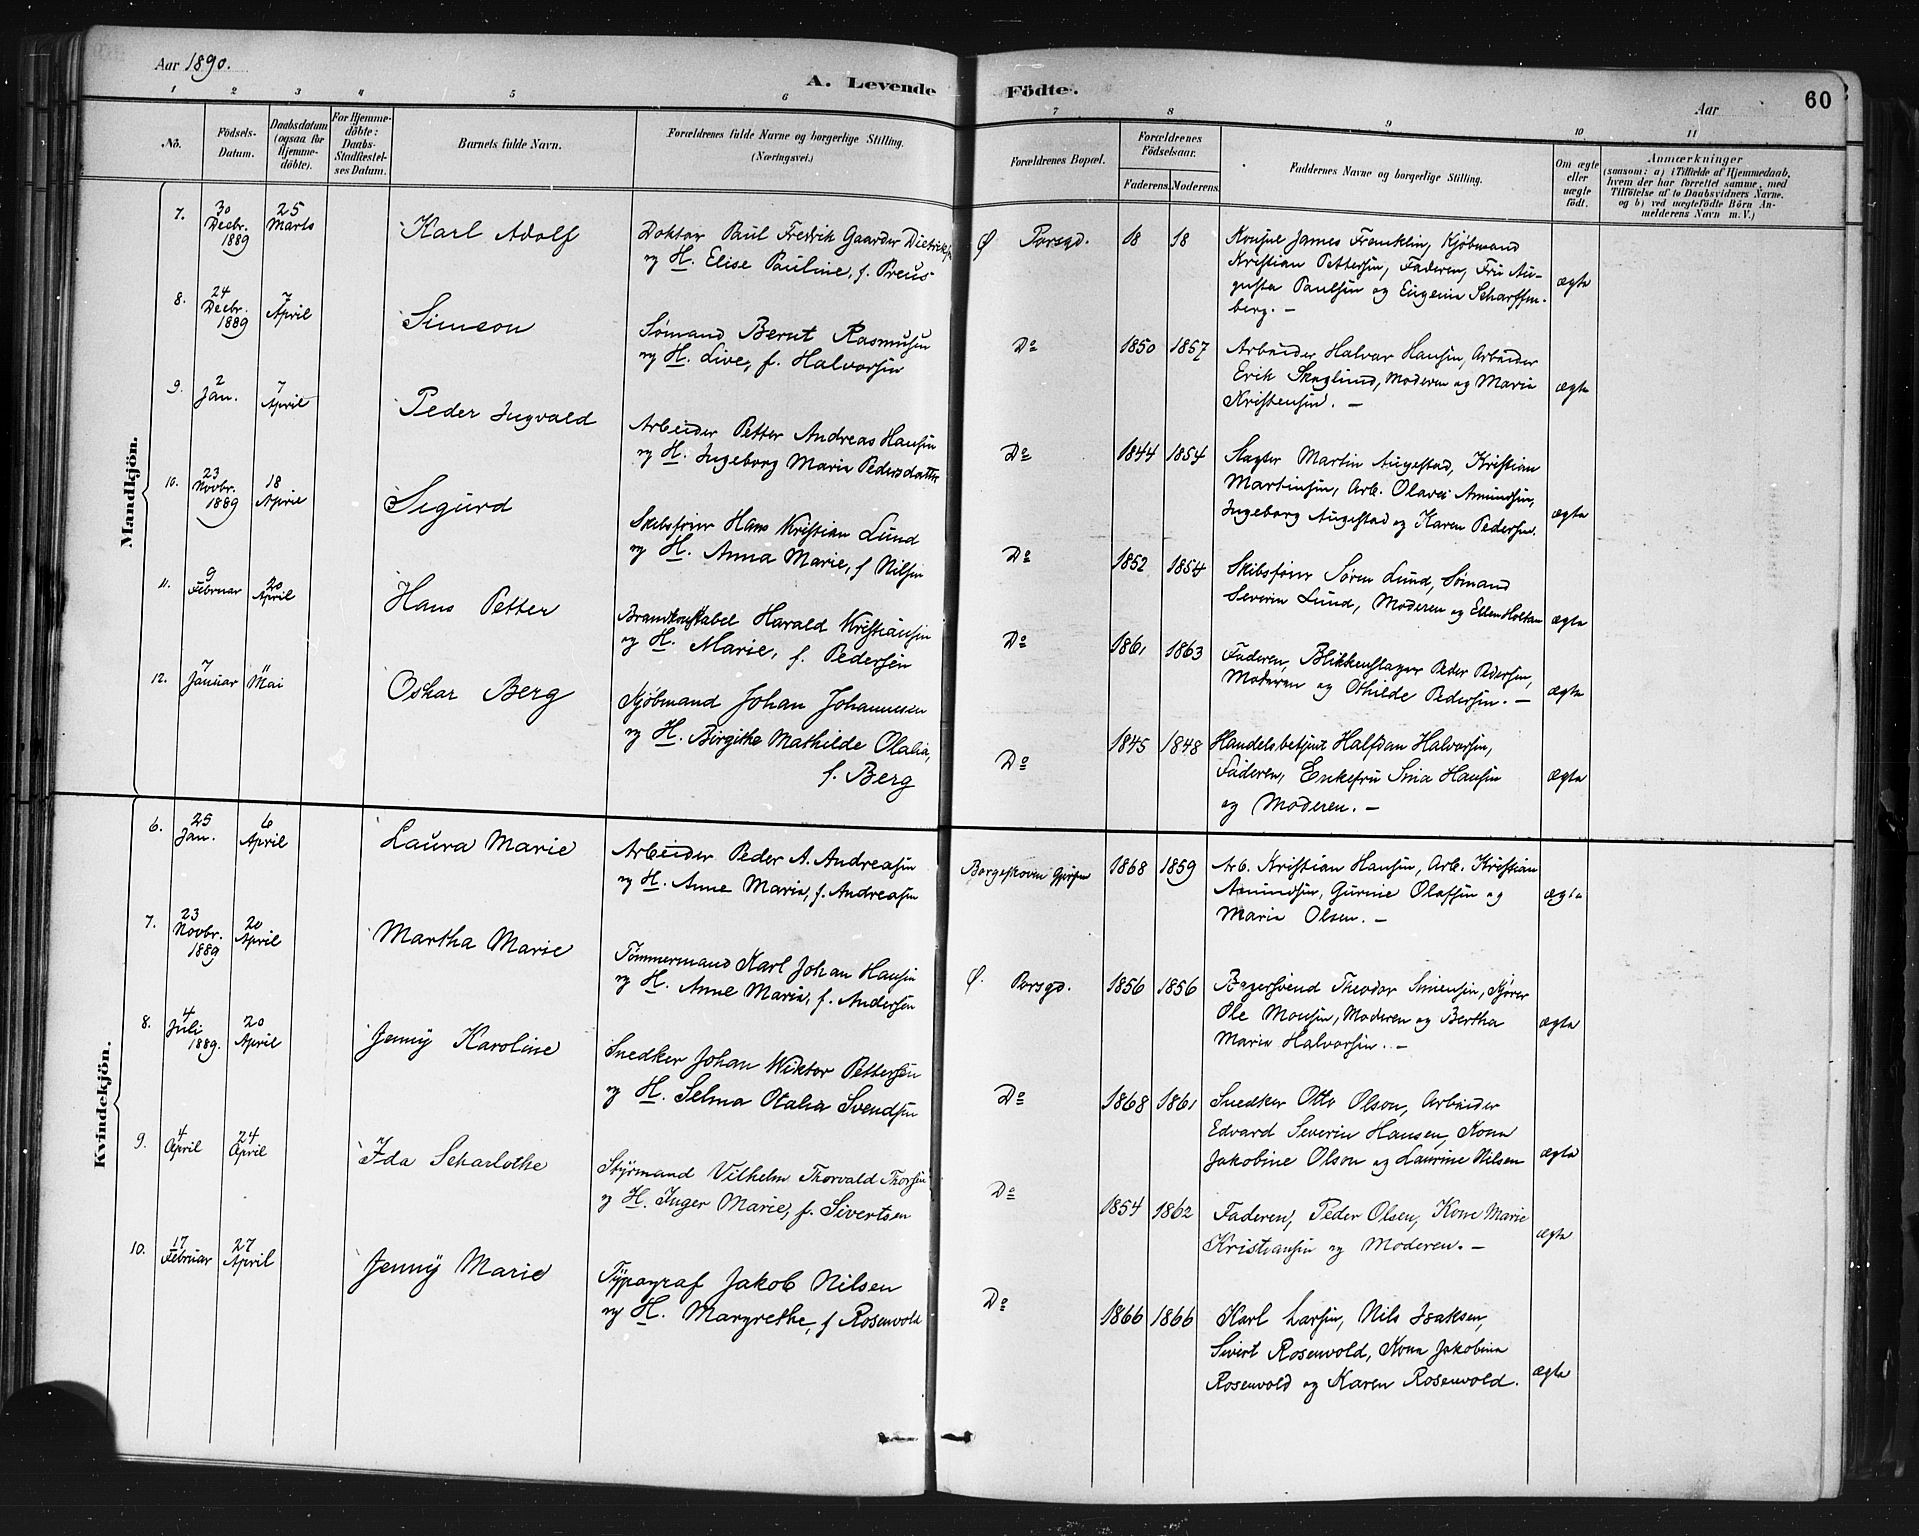 Aar 1890.
A. Levende Födte.
Aar
60
1 2 3 4 5 6 7 8 9 10 11
No.
Födsels-Datum.
Daabsdatum (ogsaa for Hjemme-döbte).
For Hjemme-döbte: Daabs-Stadfæstel-ses Datum.
Barnets fulde Navn.
Forældrenes fulde Navne og borgerlige Stilling.
(Næringsvei.)
Forældrenes Bopæl.
Forældrenes Födselsaar.
Faderens. Moderens.
Faddernes Navne og borgerlige Stilling.
Om ægte eller uægte födt.
Anmærkninger
(saasom: a) i Tilfælde af Hjemmedaab,
hvem der har forrettet samme, med
Tilföielse af to Daabsvidners Navne.
og b) ved uægtefödte Börn An-
melderens Navn m. V.)
Mandkjön.
7. 30 Decbr. 1889 25 Marts Karl Adolf
Doktor Paul Fredrik Gaarder Dietrichs
og H. Elise Pauline, f. Preus
Ø Porsgd. 18 18
Konsul James Franklin, Kjøbmand
Kristian Pettersen, Faderen, Fru Au-
gusta Paulsen og Eugenie Scharffen-
berg. –
ægte
8. 24 Decbr. 1889 7 April Simeon
Sømand Bernt Rasmusen
og H. Live, f. Halvorsen
Do 1850 1857
Arbeider Halvar Hansen, Arbeider
Erik Skoglund, Moderen og Maria
Kristensen. –
ægte
9. 2 Jan. 7 April Peder Ingvald
Arbeider Petter Andreas Hansen
og H. Ingeborg Marie Pedersdatter
Do 1844 1854
Slagter Martin Augestad, Kristian
Martinsen, Arb. Olaves Amundsen,
Ingeborg Augestad og Karen Pedersen.
ægte
10. 23 Novbr. 1889 18 April Sigurd
Skibsfører Hans Kristian Lund
og H. Anna Marie, f Nilsen
Do 1852 1854
Skibsfører Søren Lund, Sømand
Severin Lund, Moderen og Ellen Holtan
ægte
11. 9 Februar 20 April Hans Petter
Brandkonstabel Harald Kristiansen
og H. Marie, f. Pedersen
Do 1861 1863
Faderen, Blikkenslager Peder Pedersen,
Moderen og Othilde Pedersen. –
ægte
12. 7 Januar Mai Oskar Berg
Kjøbmand Johan Johannesen
og H. Birgithe Mathilde Olalia,
f. Berg
Do 1845 1848
Handelsbetjent Halfdan Halvorsen,
Faderen, Enkefru Sina Hansen
og Moderen. –
ægte
Kvindekjön.
6. 25 Jan. 6 April Laura Marie
Arbeider Peder A. Andreasen
og H. Anne Maria, f. Andreasen
Borgeskoven Gjerpen 1868 1859
Arb. Kristian Hansen, Arb. Kristian
Amundsen, Gurine Olafsen og
Maria Olsen. –
ægte
7. 23 Novbr. 1889 20 April Martha Marie
Tømmermand Karl Johan Hansen
og H. Anne Maria, f. Andersen
Ø. Porsgd. 1856 1856
Bagersvend Theodor Simensen, Kjører
Ole Monsen, Moderen og Bertha
Maria Halvorsen. –
ægte
8. 4 Juli 1889. 20 April Jenny Karoline
Snedker Johan Wiktor Pettersen
og H. Selma Otalia Svendsen
Do 1868 1861
Snedker Otto Olson, Arbeider
Edvard Severin Hansen, Kona
Jakobine Olson og Laurine Nilsen
ægte
9. 4 April 24 April Ida Scharlothe
Styrmand Vilhelm Thorvald Thorsen
og H. Inger Marie, f. Sivertsen
Do 1854 1862
Faderen, Peder Olsen, Kone Marie
Kristiansen og Moderen. –
ægte
10. 17 Februar 27 April Jenny Marie
Typograf Jakob Nilsen
og H. Margrethe, f Rosenvold
Do 1866 1866
Karl Larsen, Nils Isaksen,
Sivert Rosenvold, Kona Jakobina
Rosenvold og Karen Rosenvold.
ægte